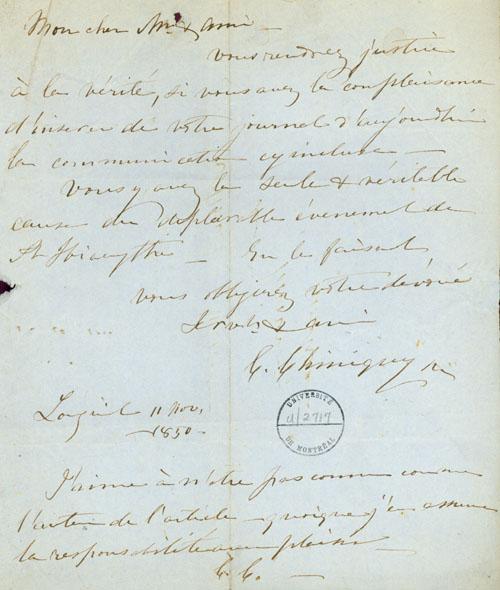 Mon cher Mr & ami –
vous rendrez justice
à la vérité, si vous avez la complaisance
d'inserer de votre journal d'aujourdhui
la communication cy incluse –
Vous y avez la seule & véritable
cause du déplorable évenement de
St Hiacynthe – En le faisant
vous obligerez votre dévoué
Servtr & ami
C. Chiniquy
Longueil 11 Nov.
1850 –
UNIVERSITÉ
U/2717
DE MONTRÉAL
J'aime à n'être pas connu comme
l'auteur de l'article – quoique j'en assume
la responsabilité
C. C. –